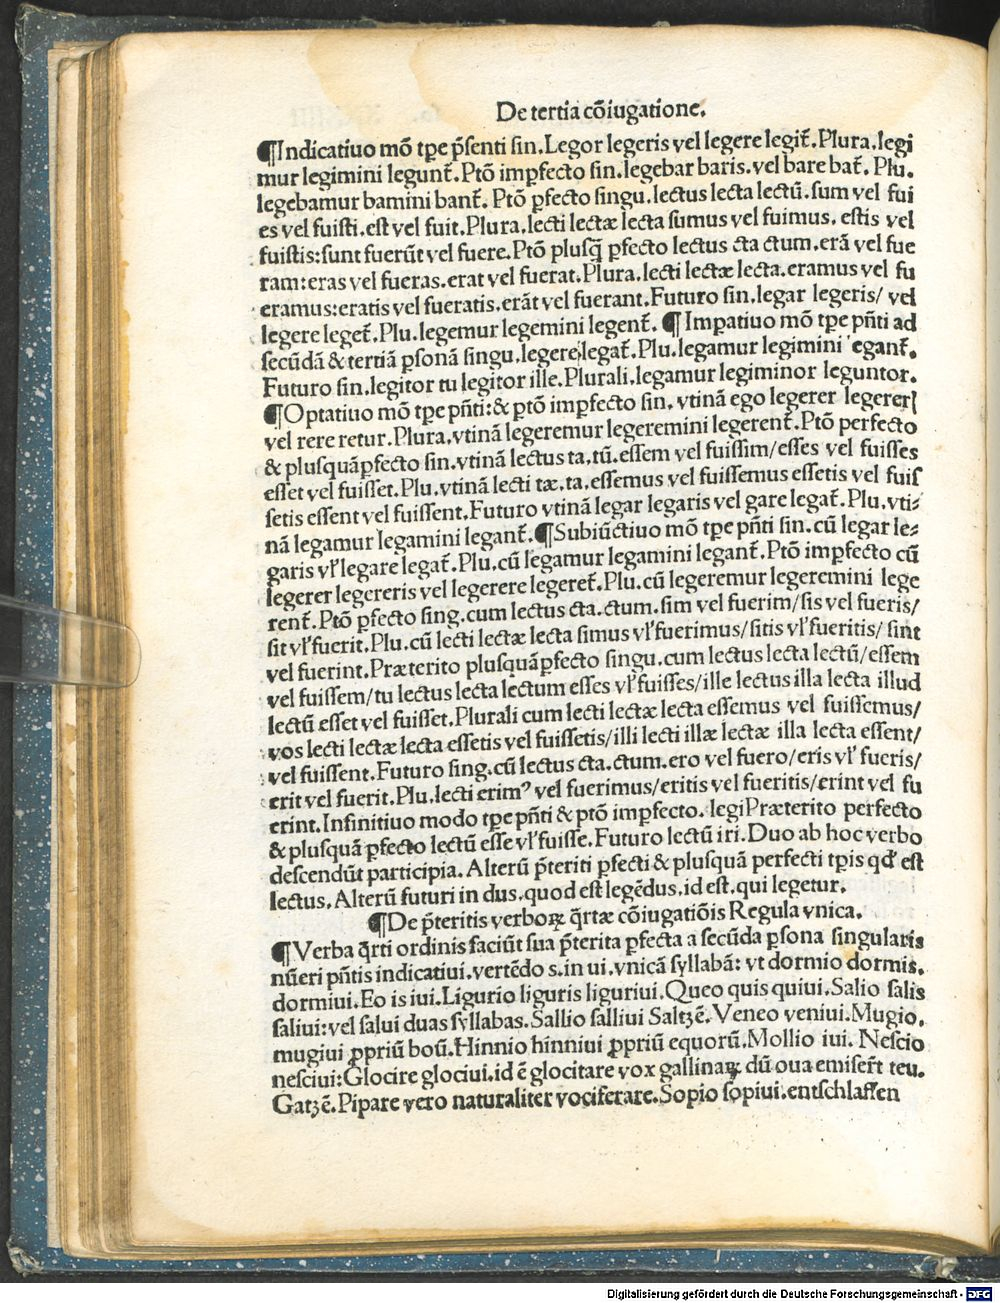 De tertia cõiugatione.
¶Indicatiuo mõ tꝑe p̃senti sin. Legor legeris vel legere legit̃. Plura. legi
mur legimini legunt̃. Ptõ imꝑfecto sin. legebar baris. vel bare bat̃. Plu.
legebamur bamini bant̃. Ptõ ꝑfecto singu. lectus lecta lectũ. sum vel fui
es vel fuisti. est vel fuit. Plura. lecti lectæ lecta sumus vel fuimus. estis vel
fuistis: sunt fuerũt vel fuere. Ptõ plusq̃ ꝑfecto lectus cta ctum. erã vel fue
ram: eras vel fueras. erat vel fuerat. Plura. lecti lectæ lecta. eramus vel fu
eramus: eratis vel fueratis. erãt vel fuerant. Futuro sin. legar legeris/ vel
legere leget̃. Plu. legemur legemini legent̃. ¶ Imꝑatiuo mõ tꝑe pñti ad
secũdã & tertiã ꝑsonã singu. legere legat̃. Plu. legamur legimini egant̃.
Futuro sin. legitor tu legitor ille. Plurali. legamur legiminor leguntor.
¶Optatiuo mõ tꝑe pñti: & ptõ imꝑfecto sin. vtinã ego legerer legerer
vel rere retur. Plura. vtinã legeremur legeremini legerent̃. Ptõ perfecto
& plusquãꝑfecto sin. vtinã lectus ta. tũ. essem vel fuissim/esses vel fuisses
esset vel fuisset. Plu. vtinã lecti tæ. ta. essemus vel fuissemus essetis vel fuis
setis essent vel fuissent. Futuro vtinã legar legaris vel gare legat̃. Plu. vti⸗
nã legamur legamini legant̃. ¶Subiũctiuo mõ tꝑe pñti sin. cũ legar le⸗
garis vl̛ legare legat̃. Plu. cũ legamur legamini legant̃. Ptõ imꝑfecto cũ
legerer legereris vel legerere legeret̃. Plu. cũ legeremur legeremini lege
rent̃. Ptõ ꝑfecto sing. cum lectus cta. ctum. sim vel fuerim/sis vel fueris/
sit vl̛ fuerit. Plu. cũ lecti lectæ lecta simus vl̛ fuerimus/sitis vl̛ fueritis/ sint
vel fuerint. Præterito plusquãꝑfecto singu. cum lectus lecta lectũ/essem
vel fuissem/tu lectus lecta lectum esses vl̛ fuisses/ille lectus illa lecta illud
lectũ esset vel fuisset. Plurali cum lecti lectæ lecta essemus vel fuissemus/
vos lecti lectæ lecta essetis vel fuissetis/illi lecti illæ lectæ illa lecta essent/
vel fuissent. Futuro sing. cũ lectus cta. ctum. ero vel fuero/eris vl̛ fueris/
erit vel fuerit. Plu. lecti erimꝰ vel fuerimus/eritis vel fueritis/erint vel fu
erint. Infinitiuo modo tꝑe pñti & ptõ imꝑfecto. legi Præterito perfecto
& plusquã ꝑfecto lectũ esse vl̛ fuisse. Futuro lectũ iri. Duo ab hoc verbo
descendũt participia. Alterũ p̃teriti ꝑfecti & plusquã perfecti tꝑis qd̛ est
lectus. Alterũ futuri in dus. quod est legẽdus. id est. qui legetur.
¶De p̃teritis verboꝝ q̃rtæ cõiugatiõis Regula vnica.
¶Verba q̃rti ordinis faciũt sua p̃terita ꝑfecta a secũda ꝑsona singularis
nũeri pñtis indicatiui. vertẽdo s. in ui. vnicã syllabã: vt dormio dormis.
dormiui. Eo is iui. Ligurio liguris liguriui. Queo quis quiui. Salio salis
saliui: vel salui duas syllabas. Sallio salliui Saltzẽ. Veneo veniui. Mugio.
mugiui ꝓpriũ boũ. Hinnio hinniui ꝓpriũ equorũ. Mollio iui. Nescio
nesciui: Glocire glociui. id ẽ glocitare vox gallinaꝝ dũ oua emiser̃t teu.
Gatzẽ. Pipare vero naturaliter vociferare. Sopio sopiui. entschlaffen
Digitalisierung gefördert durch die Deutsche Forschungsgemeinschaft - DFG